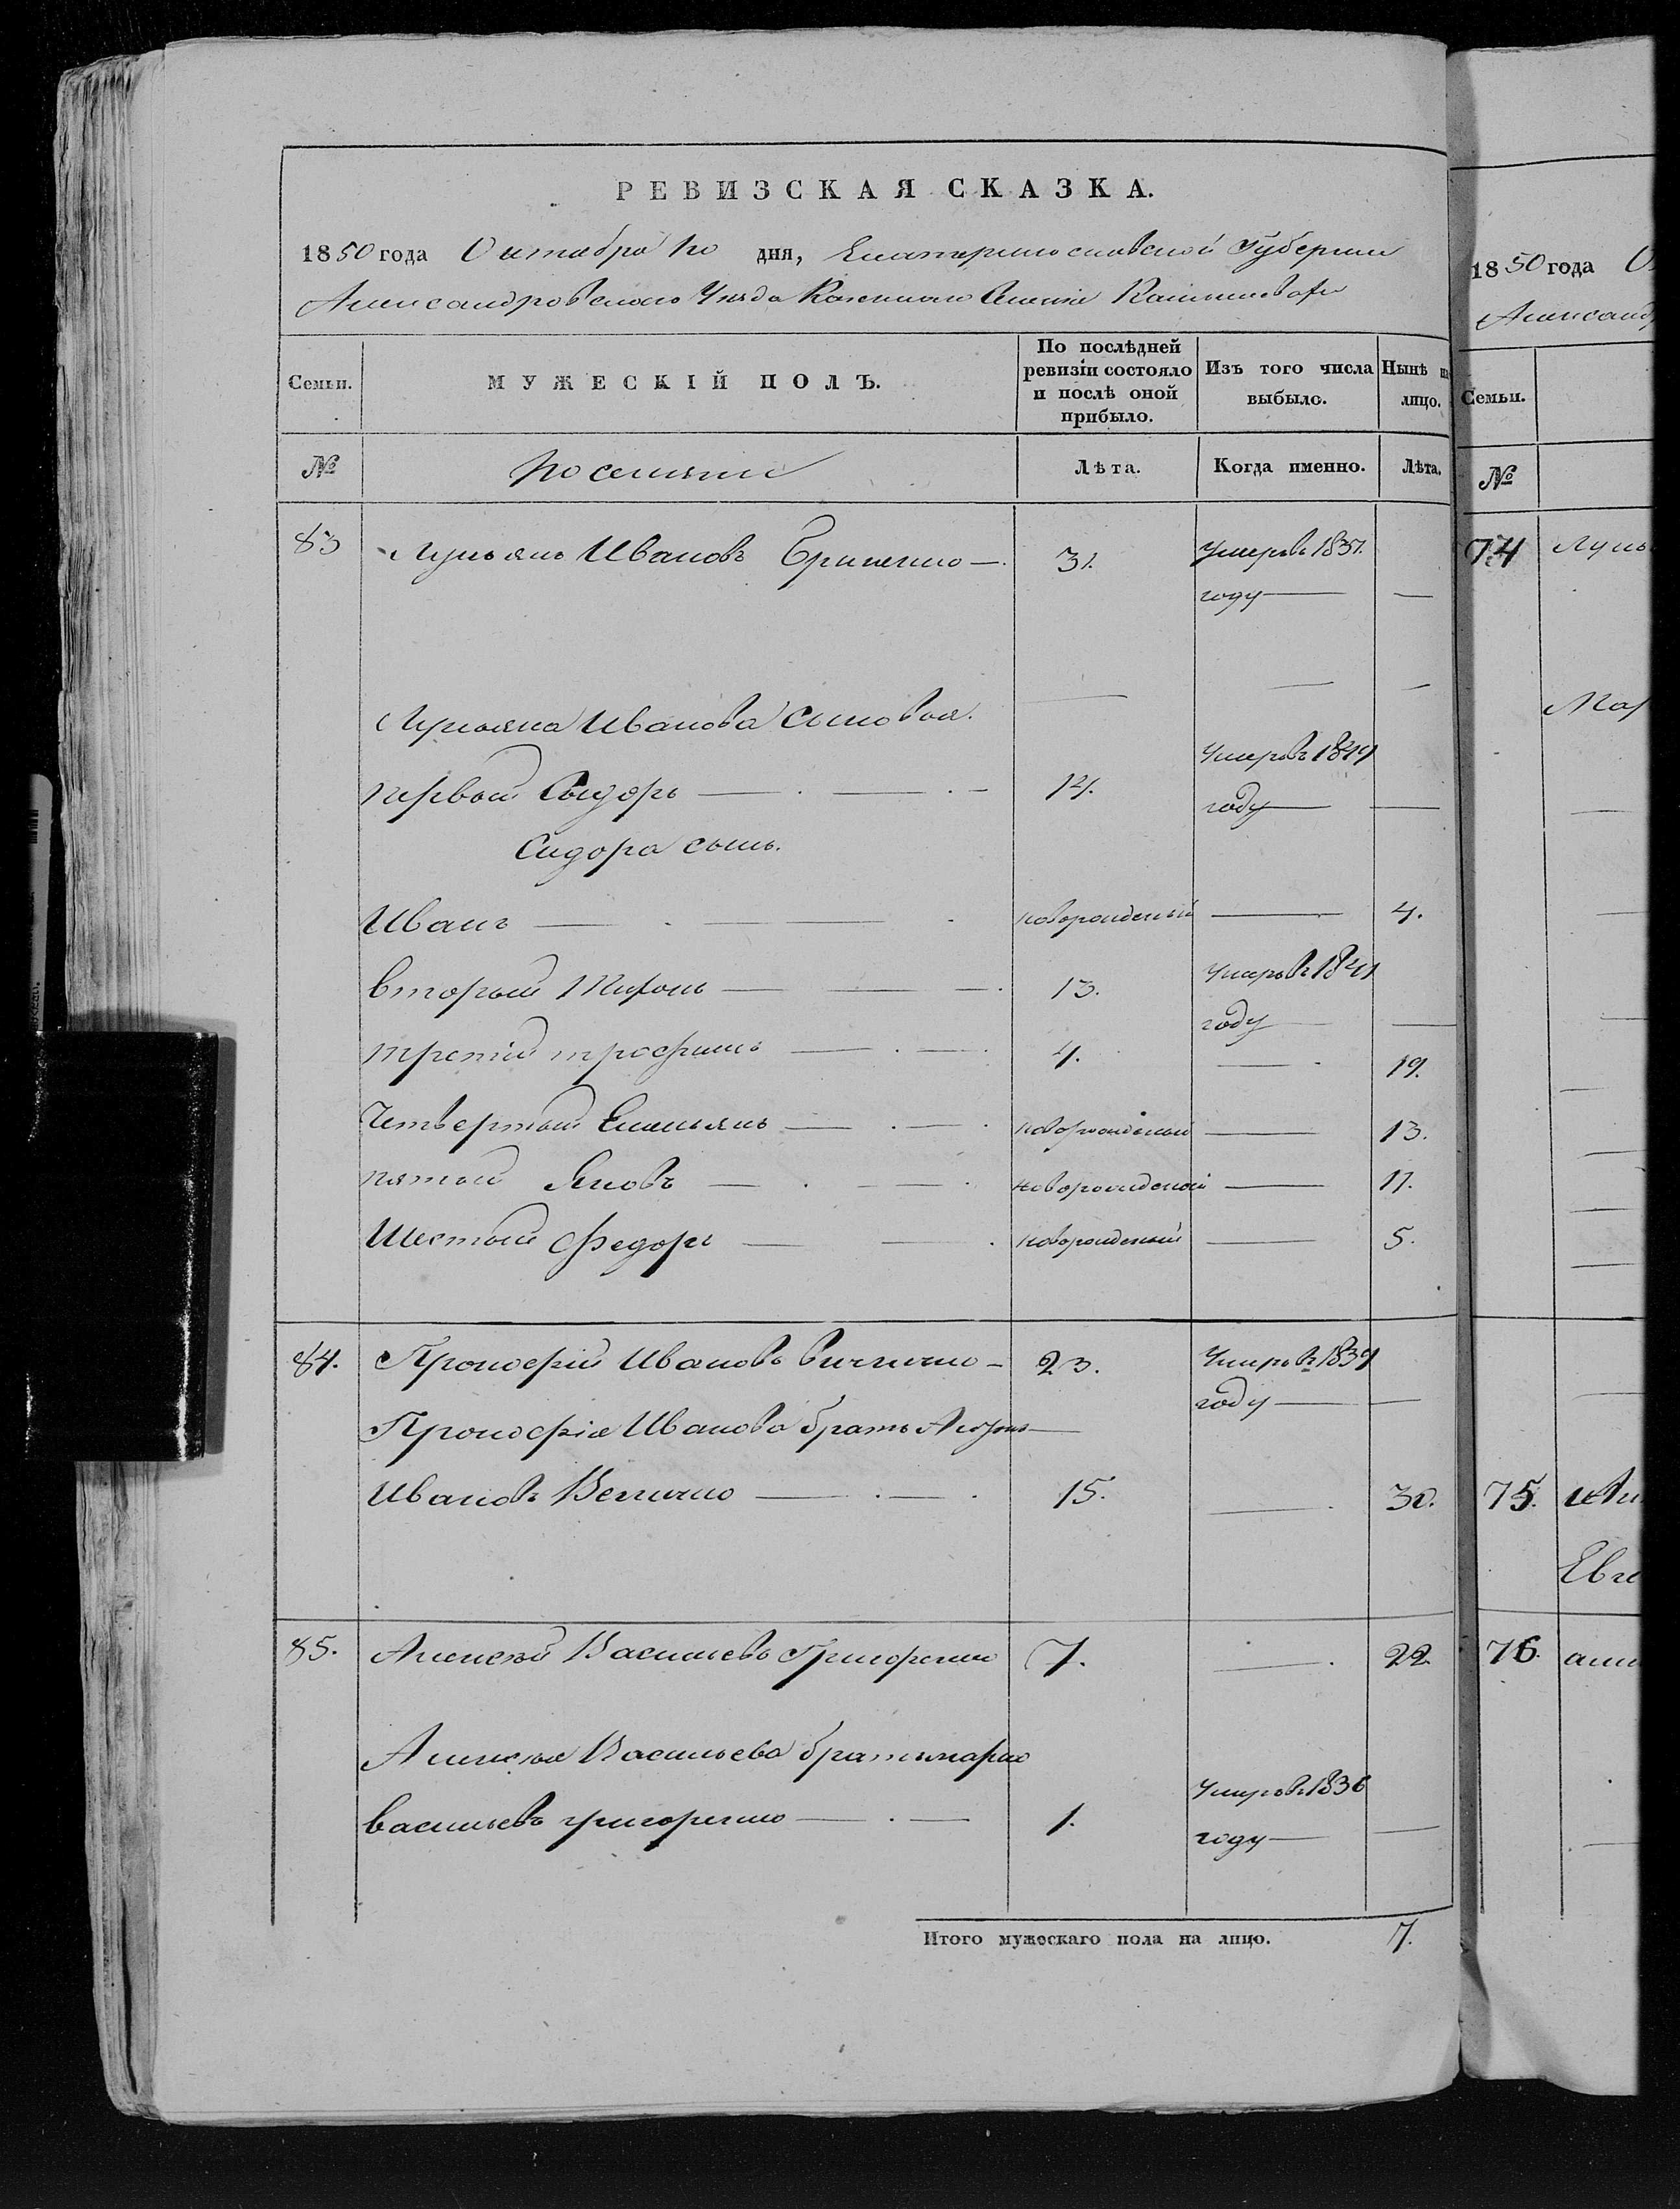 РЕВИЗСКАЯ СКАЗКА.
1850 года Октабра 20 дня, Екатеринославской Губернии
Александровского Уезда Казенного Селения
Семьи.
МУЖЕСКІЙ ПОЛЪ.
По послѣдней ревизіи состояло и послѣ оной прибыло.
Изъ того числа выбыло.
Нынѣ на лицо.
№
Поселяне
Лѣта.
Когда именно.
Лѣта.
83 Лукьянъ Ивановъ 31. Умеръ въ 1837.
году
Лукьяна Иванова сыновья.
первый Сидоръ 14. Умеръ въ 1849
году
Сидора сынъ.
Иванъ новорожденый 4.
вторый Миронъ 13. Умеръ въ 1841
году
третій трофимъ 4. 19.
Четвертый Емельянъ новорожденый 13.
пятый Яковъ новорожденый 11.
Шестый Федоръ новорожденый 5.
84. Прокофій Ивановъ Величко 23. Умеръ въ 1839
году
Прокофія Иванова братъ
Ивановъ Величко 15. 30.
85. Алексѣй Васильевъ Григоренко 7. 22
Алексѣя Васильева братъ марко
васильевъ григоренко 1. Умеръ въ 1836
году
Итого мужескаго пола на лицо. 7.
1850 года
Александ
Семьи.
№
74 Лукь
Мар
75.
Евг
76.